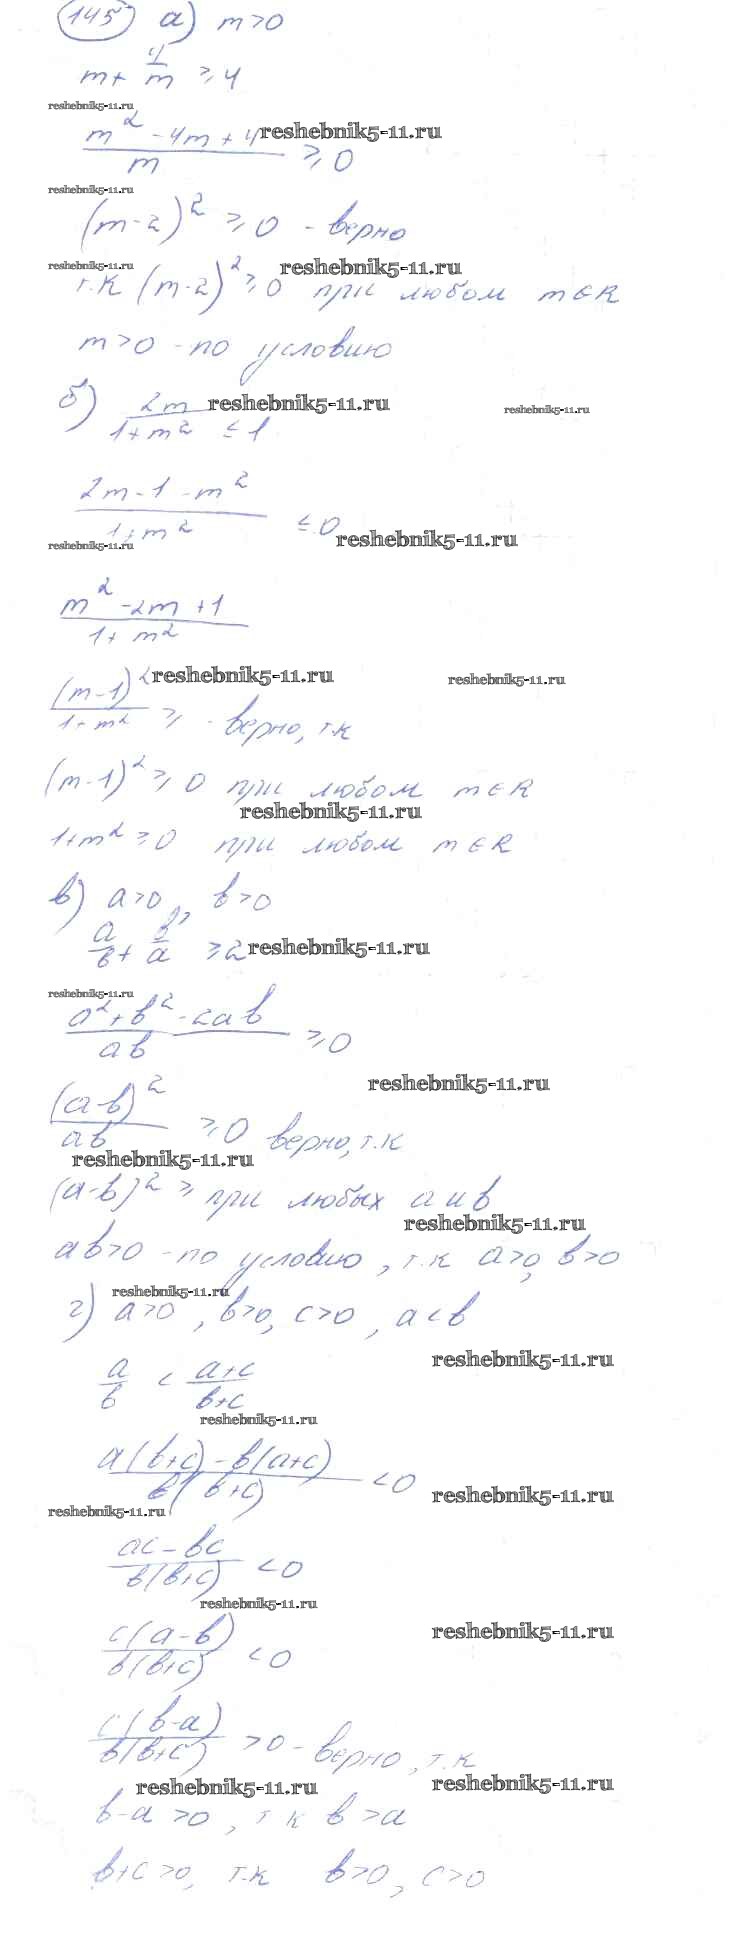 145 а) m>0
m+ 4/m ≥ 4
reshebnik5-11.ru
(m² -4m+4)/m ≥ 0 reshebnik5-11.ru
reshebnik5-11.ru
(m-2)² ≥ 0 - верно
reshebnik5-11.ru reshebnik5-11.ru
т.к (m-2)² ≥ 0 при любом m∈R
m>0 - по условию
б) 2m/(1+m²) ≤ 1 reshebnik5-11.ru reshebnik5-11.ru
(2m-1-m²)/(1+m²) ≤ 0 reshebnik5-11.ru
reshebnik5-11.ru
(m²-2m+1)/(1+m²)
reshebnik5-11.ru reshebnik5-11.ru
(m-1)²/(1+m²) ≥ - верно, т.к
(m-1)² ≥ 0 при любом m∈R
reshebnik5-11.ru
1+m² ≥ 0 при любом m∈R
в) a>0, b>0
a/b + b/a ≥ 2 reshebnik5-11.ru
reshebnik5-11.ru
(a²+b²-2ab)/ab ≥ 0
reshebnik5-11.ru
(a-b)²/ab ≥ 0 верно, т.к
reshebnik5-11.ru
(a-b)² ≥ при любых a и b
reshebnik5-11.ru
ab>0 - по условию, т.к a>0, b>0
reshebnik5-11.ru
г) a>0, b>0, c>0, a<b
reshebnik5-11.ru
a/b < (a+c)/(b+c)
reshebnik5-11.ru
(a(b+c)-b(a+c))/(b(b+c)) <0
reshebnik5-11.ru
reshebnik5-11.ru
(ac-bc)/(b(b+c)) <0
reshebnik5-11.ru
(c(a-b))/(b(b+c)) <0 reshebnik5-11.ru
(c(b-a))/(b(b+c)) >0 - верно, т.к
reshebnik5-11.ru reshebnik5-11.ru
b-a>0, т к b>a
b+c>0, т.к b>0, c>0